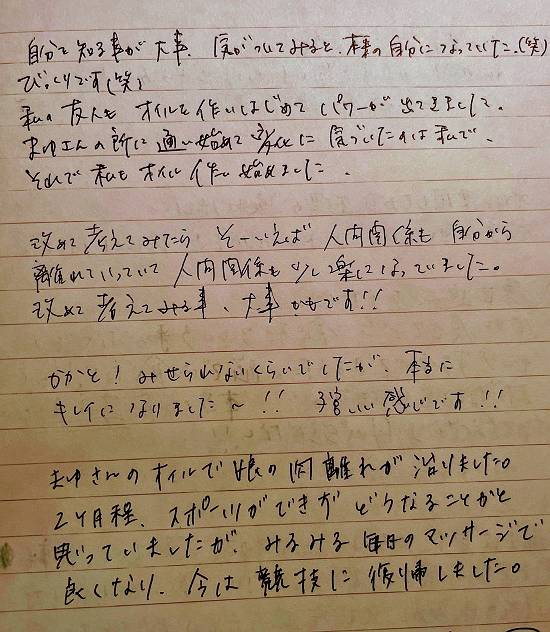 自分を知る事が大事。気がついてみると、本来の自分になっていた。(笑)
びっくりです(笑)
私の友人もオイルを作りはじめてパワーが出てきました。
まゆさんの所に通い始めて変化に気づいたのは私で、
それで私もオイル作り始めました。
改めて考えてみたら そーいえば 人間関係も 自分から
離れていっていて 人間関係も少し楽になっていました。
改めて考えてみる事、大事かもです!!
かかと! みせられないくらいでしたが、本当に
キレイになりました〜!! 強いい感じです!!
まゆさんのオイルで娘の肉離れが治りました。
2ヶ月程、スポーツができず どうなることかと
思っていましたが、みるみる毎日のマッサージで
良くなり、今は競技に復帰しました。